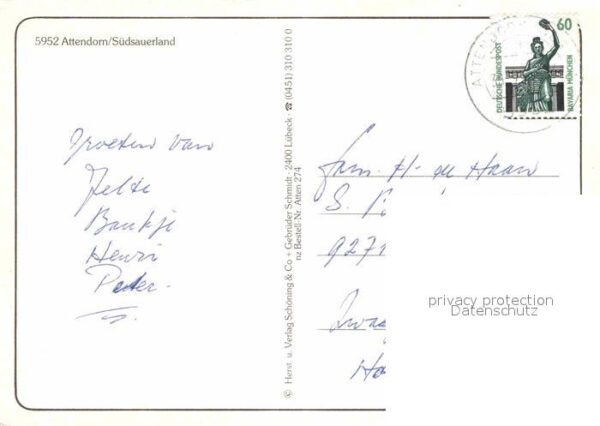 5952 Attendorn/Südsauerland
60
DEUTSCHE BUNDESPOST
BAVARIA MÜNCHEN
ATTENDORN
Groeten van
Jelte
Baukje
Henri
Peter.
© Herst. u. Verlag Schöning & Co + Gebrüder Schmidt · 2400 Lübeck · ☎ (0451) 310 310 0
nz Bestell-Nr. Atten 274
Fam. H. de Haan
S.
9271
Zwaa
Ho
privacy protection
Datenschutz